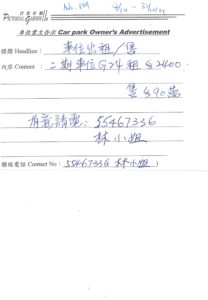 No. 699 4/10 - 31/10/25
牡丹花園
PICTORIAL GARDEN
車位業主告示 Car park Owner's Advertisement
標題 Headline： 車位出租/售
內容 Content ： 二期車位 G74 租 $2400
售 $90萬
有意請電: 55467336
林小姐
聯絡電話 Contact No： 55467336 林小姐